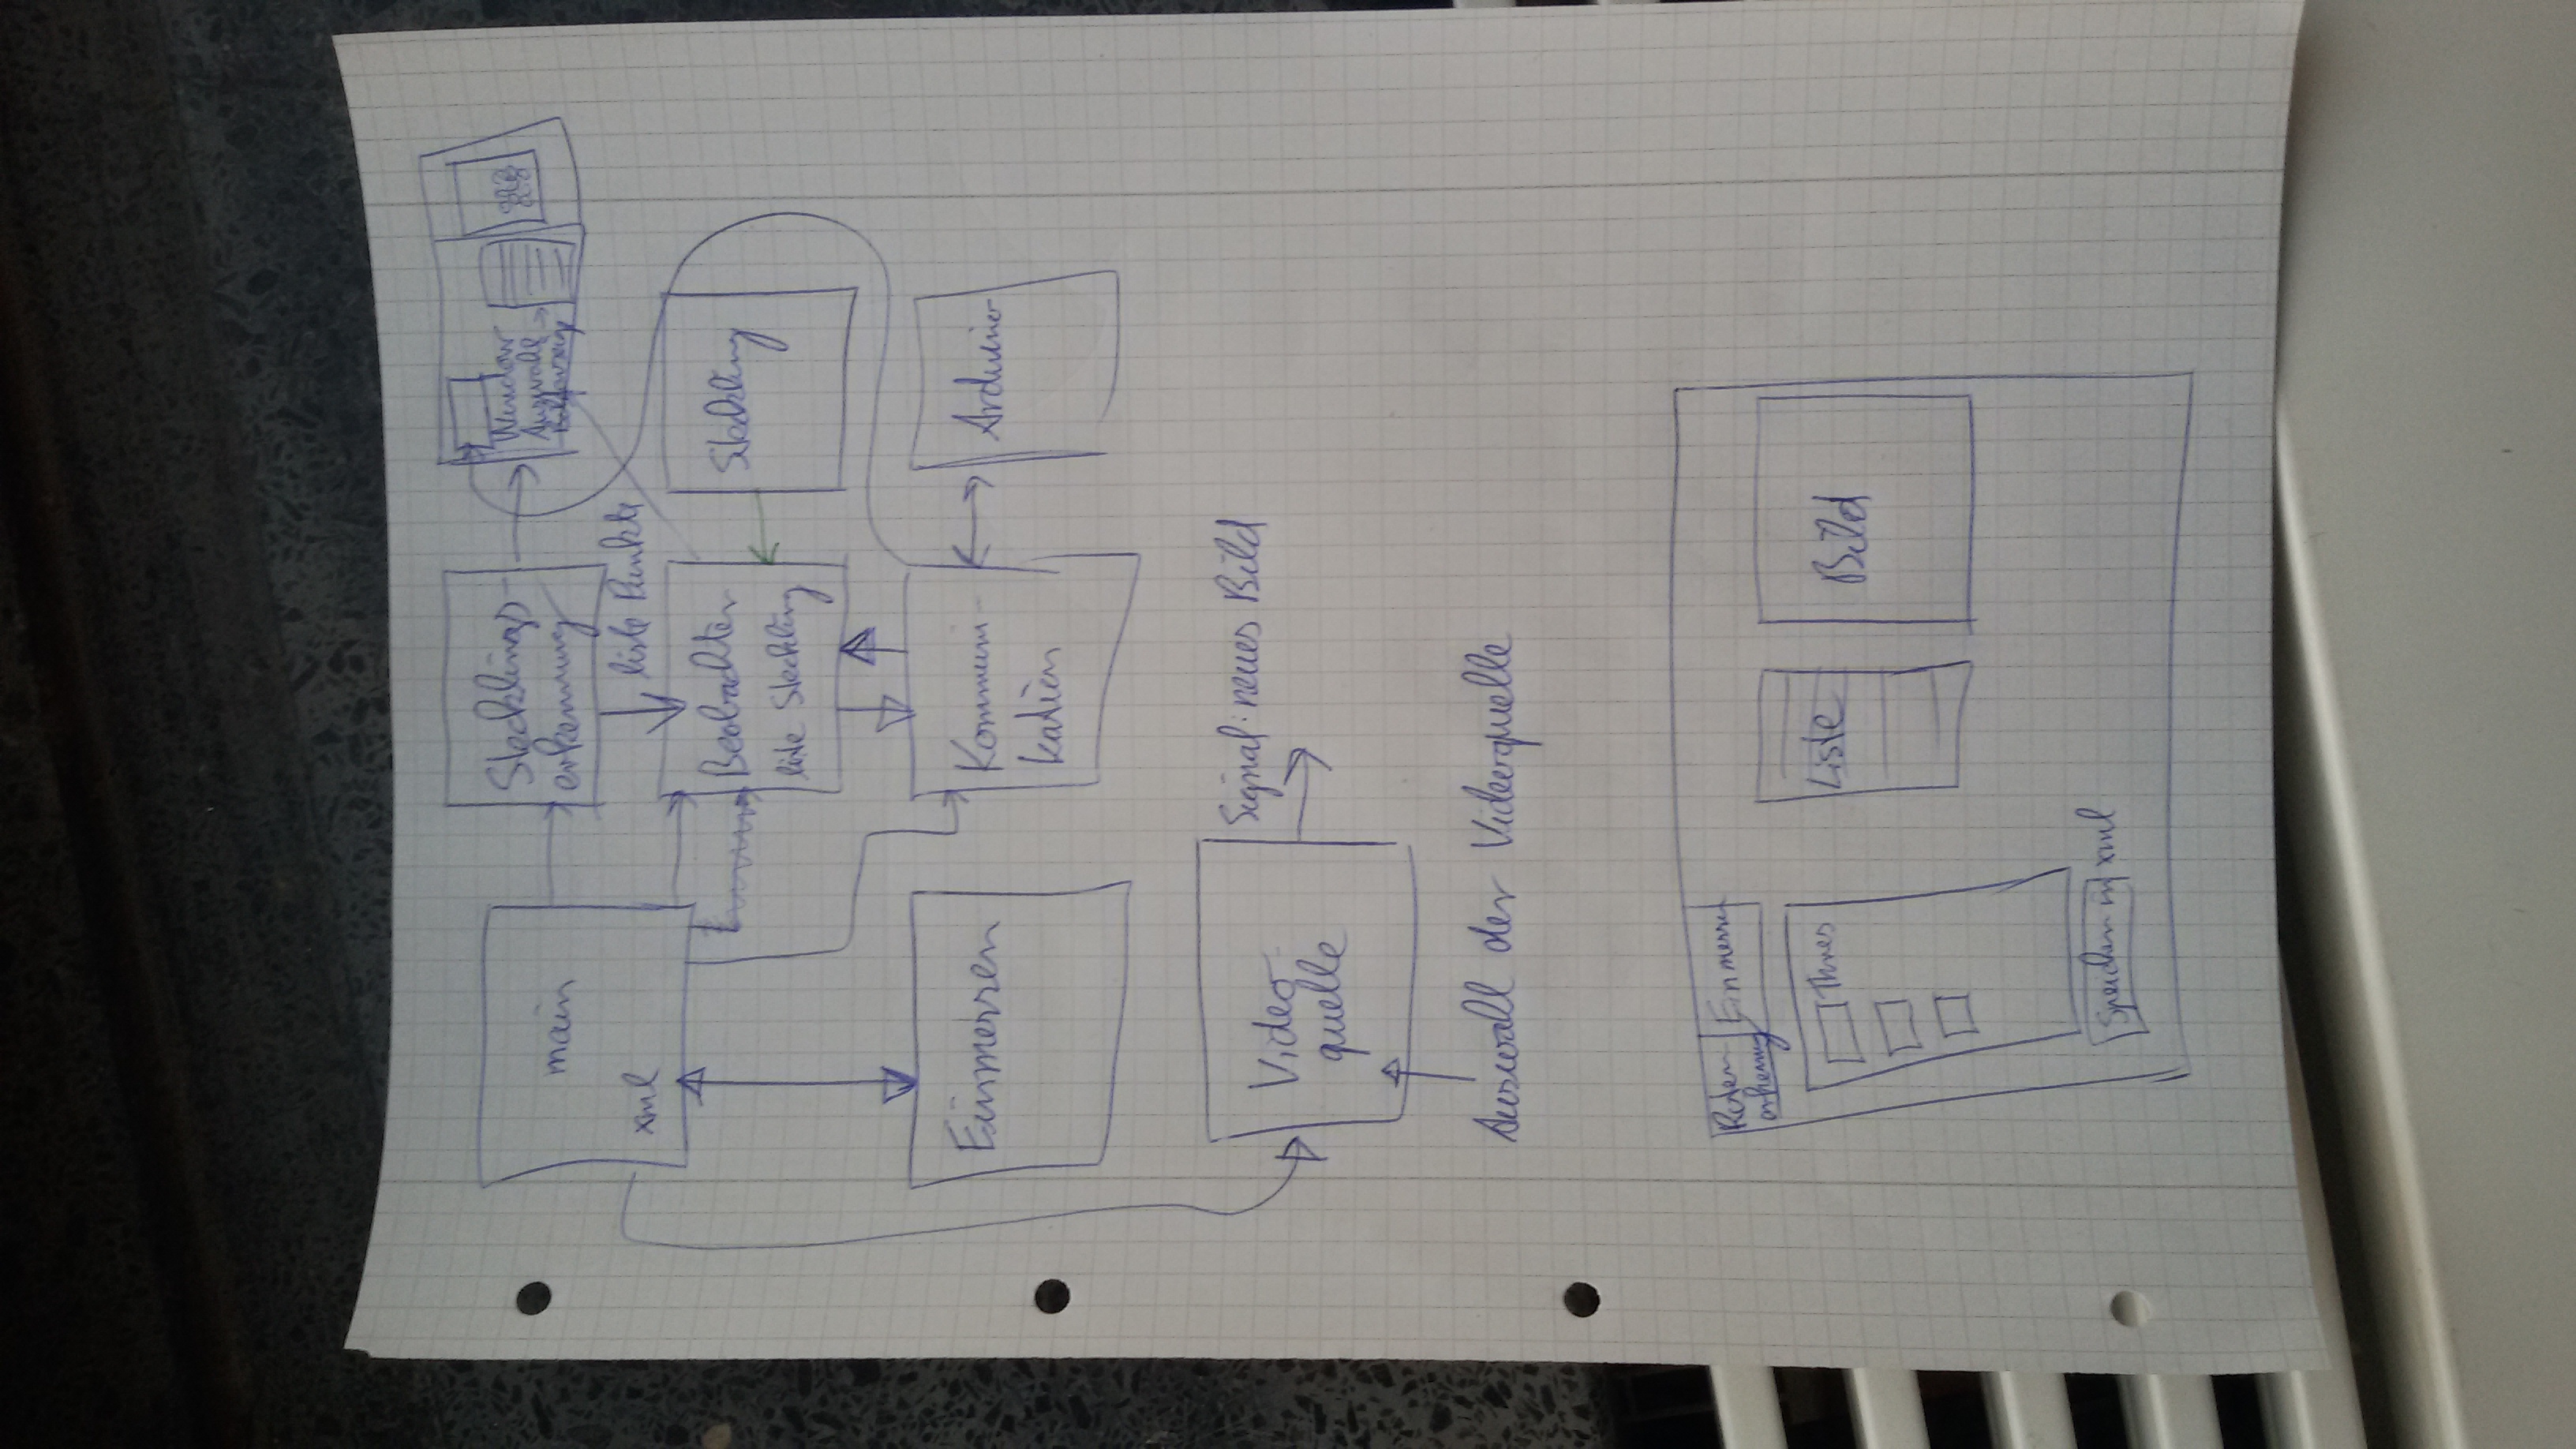 main
xml
Stecklings-
erkennung
Window
Auswahl
liste Punkte
Beobachter
liste Steckling
Steckling
Einmessen
Kommuni-
kation
Arduino
Video-
quelle
Signal: neues Bild
Auswall der Videoquelle
Einmessen
Thres
Liste
Bild
Speichern in xml